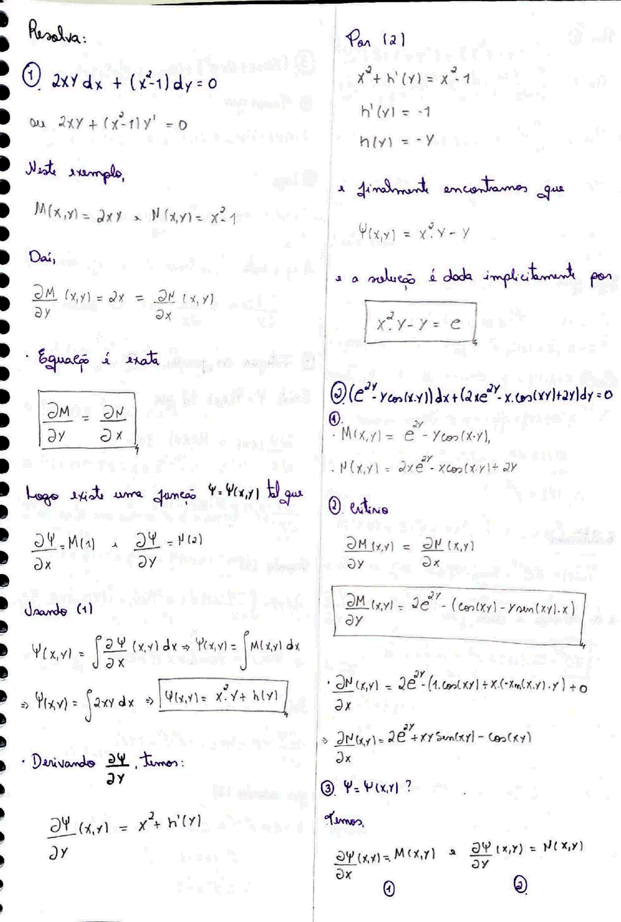 Resolva:
① 2xy dx + (x²-1) dy = 0
ou 2xy + (x²-1) y' = 0
Neste exemplo,
M(x,y) = 2xy e N(x,y) = x²-1
Daí,
∂M/∂y (x,y) = 2x = ∂N/∂x (x,y)
· Equação é exata
∂M/∂y = ∂N/∂x
Logo existe uma função Ψ=Ψ(x,y) tal que
∂Ψ/∂x = M (1) e ∂Ψ/∂y = N (2)
Usando (1)
Ψ(x,y) = ∫ ∂Ψ/∂x (x,y) dx ⇒ Ψ(x,y) = ∫ M(x,y) dx
⇒ Ψ(x,y) = ∫ 2xy dx ⇒ Ψ(x,y) = x².y + h(y)
· Derivando ∂Ψ/∂y, temos:
∂Ψ/∂y (x,y) = x² + h'(y)
Por (2)
x² + h'(y) = x²-1
h'(y) = -1
h(y) = -y
e finalmente encontramos que
Ψ(x,y) = x².y - y
e a solução é dada implicitamente por
x².y - y = c
② (e^{2y} - y cos(x.y)) dx + (2xe^{2y} - x.cos(xy) + 2y) dy = 0
①.
· M(x,y) = e^{2y} - y cos(x.y),
· N(x,y) = 2xe^{2y} - x cos(x.y) + 2y
②. Critério
∂M/∂y (x,y) = ∂N/∂x (x,y)
∂M/∂y (x,y) = 2e^{2y} - (cos(xy) - y sin(xy).x)
· ∂N/∂x (x,y) = 2e^{2y} - (1.cos(xy) + x.(-sin(x.y).y) + 0
⇒ ∂N/∂x (x,y) = 2e^{2y} + xy sin(xy) - cos(xy)
③. Ψ = Ψ(x,y) ?
Temos,
∂Ψ/∂x (x,y) = M(x,y) e ∂Ψ/∂y (x,y) = N(x,y)
① ②